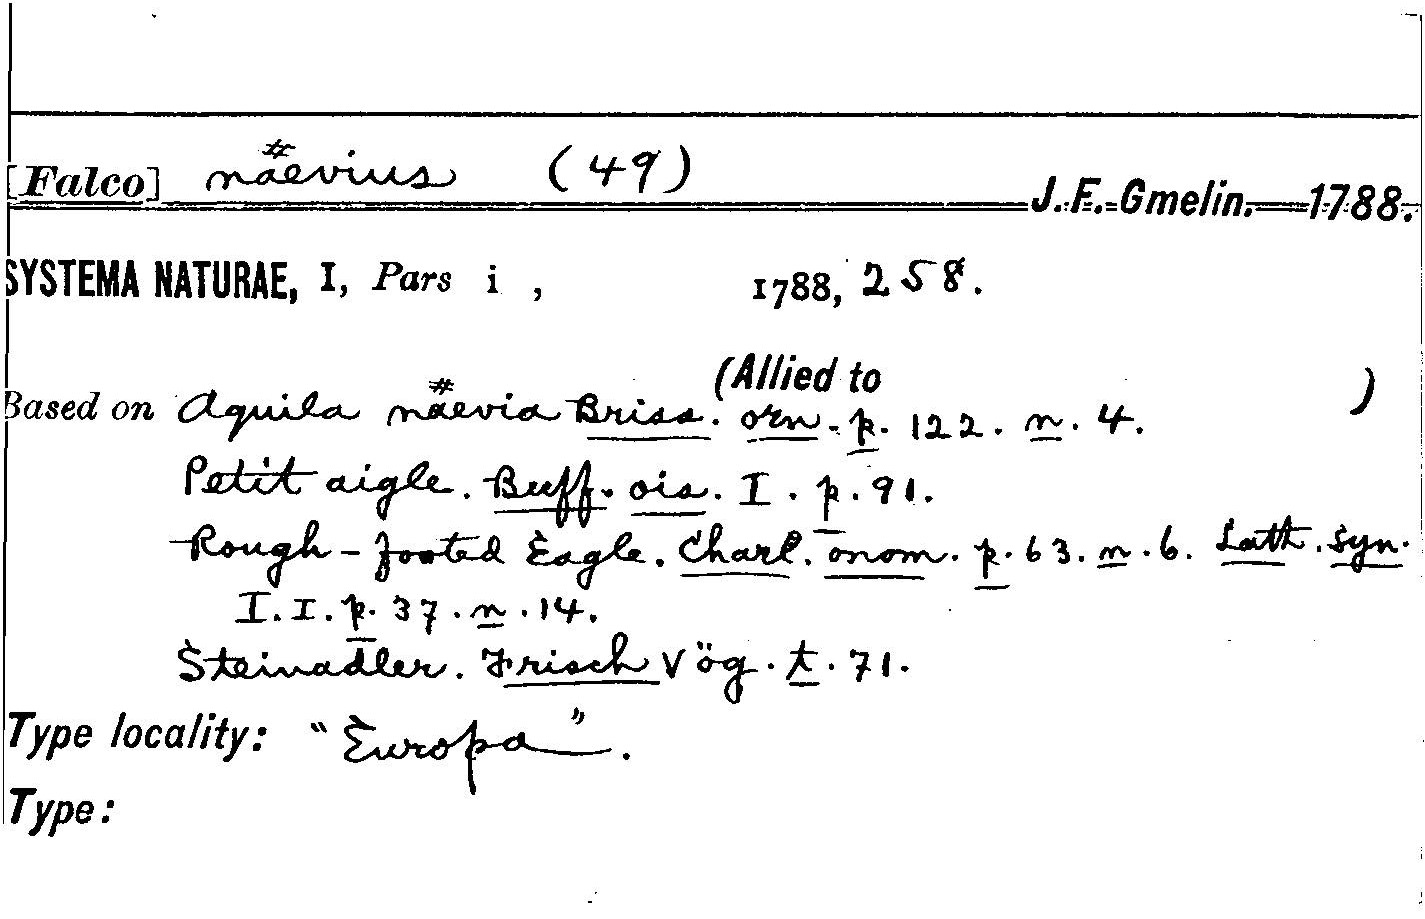 [Falco] naevius (49) J. F. Gmelin. 1788.
SYSTEMA NATURAE, I, Pars i , 1788, 258.
(Allied to )
Based on Aquila naevia Briss. orn. p. 122. n. 4.
Petit aigle. Buff. ois. I. p. 91.
Rough-footed Eagle. Charl. onom. p. 63. n. 6. Lath. syn.
I. I. p. 37. n. 14.
Steinadler. Frisch Vög. t. 71.
Type locality: "Europa".
Type: